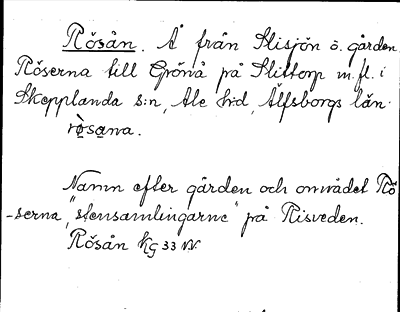 Rösån. Å från Slisjön ö. gården
Röserna till Grönå på Slittorp m. fl. i
Skepplanda s:n, Ale h:d, Älfsborgs län.
rö̀sa̱na.
Namn efter gården och området Rö
-serna, "stensamlingarne" på Risveden.
Rösån Kg 33 NV